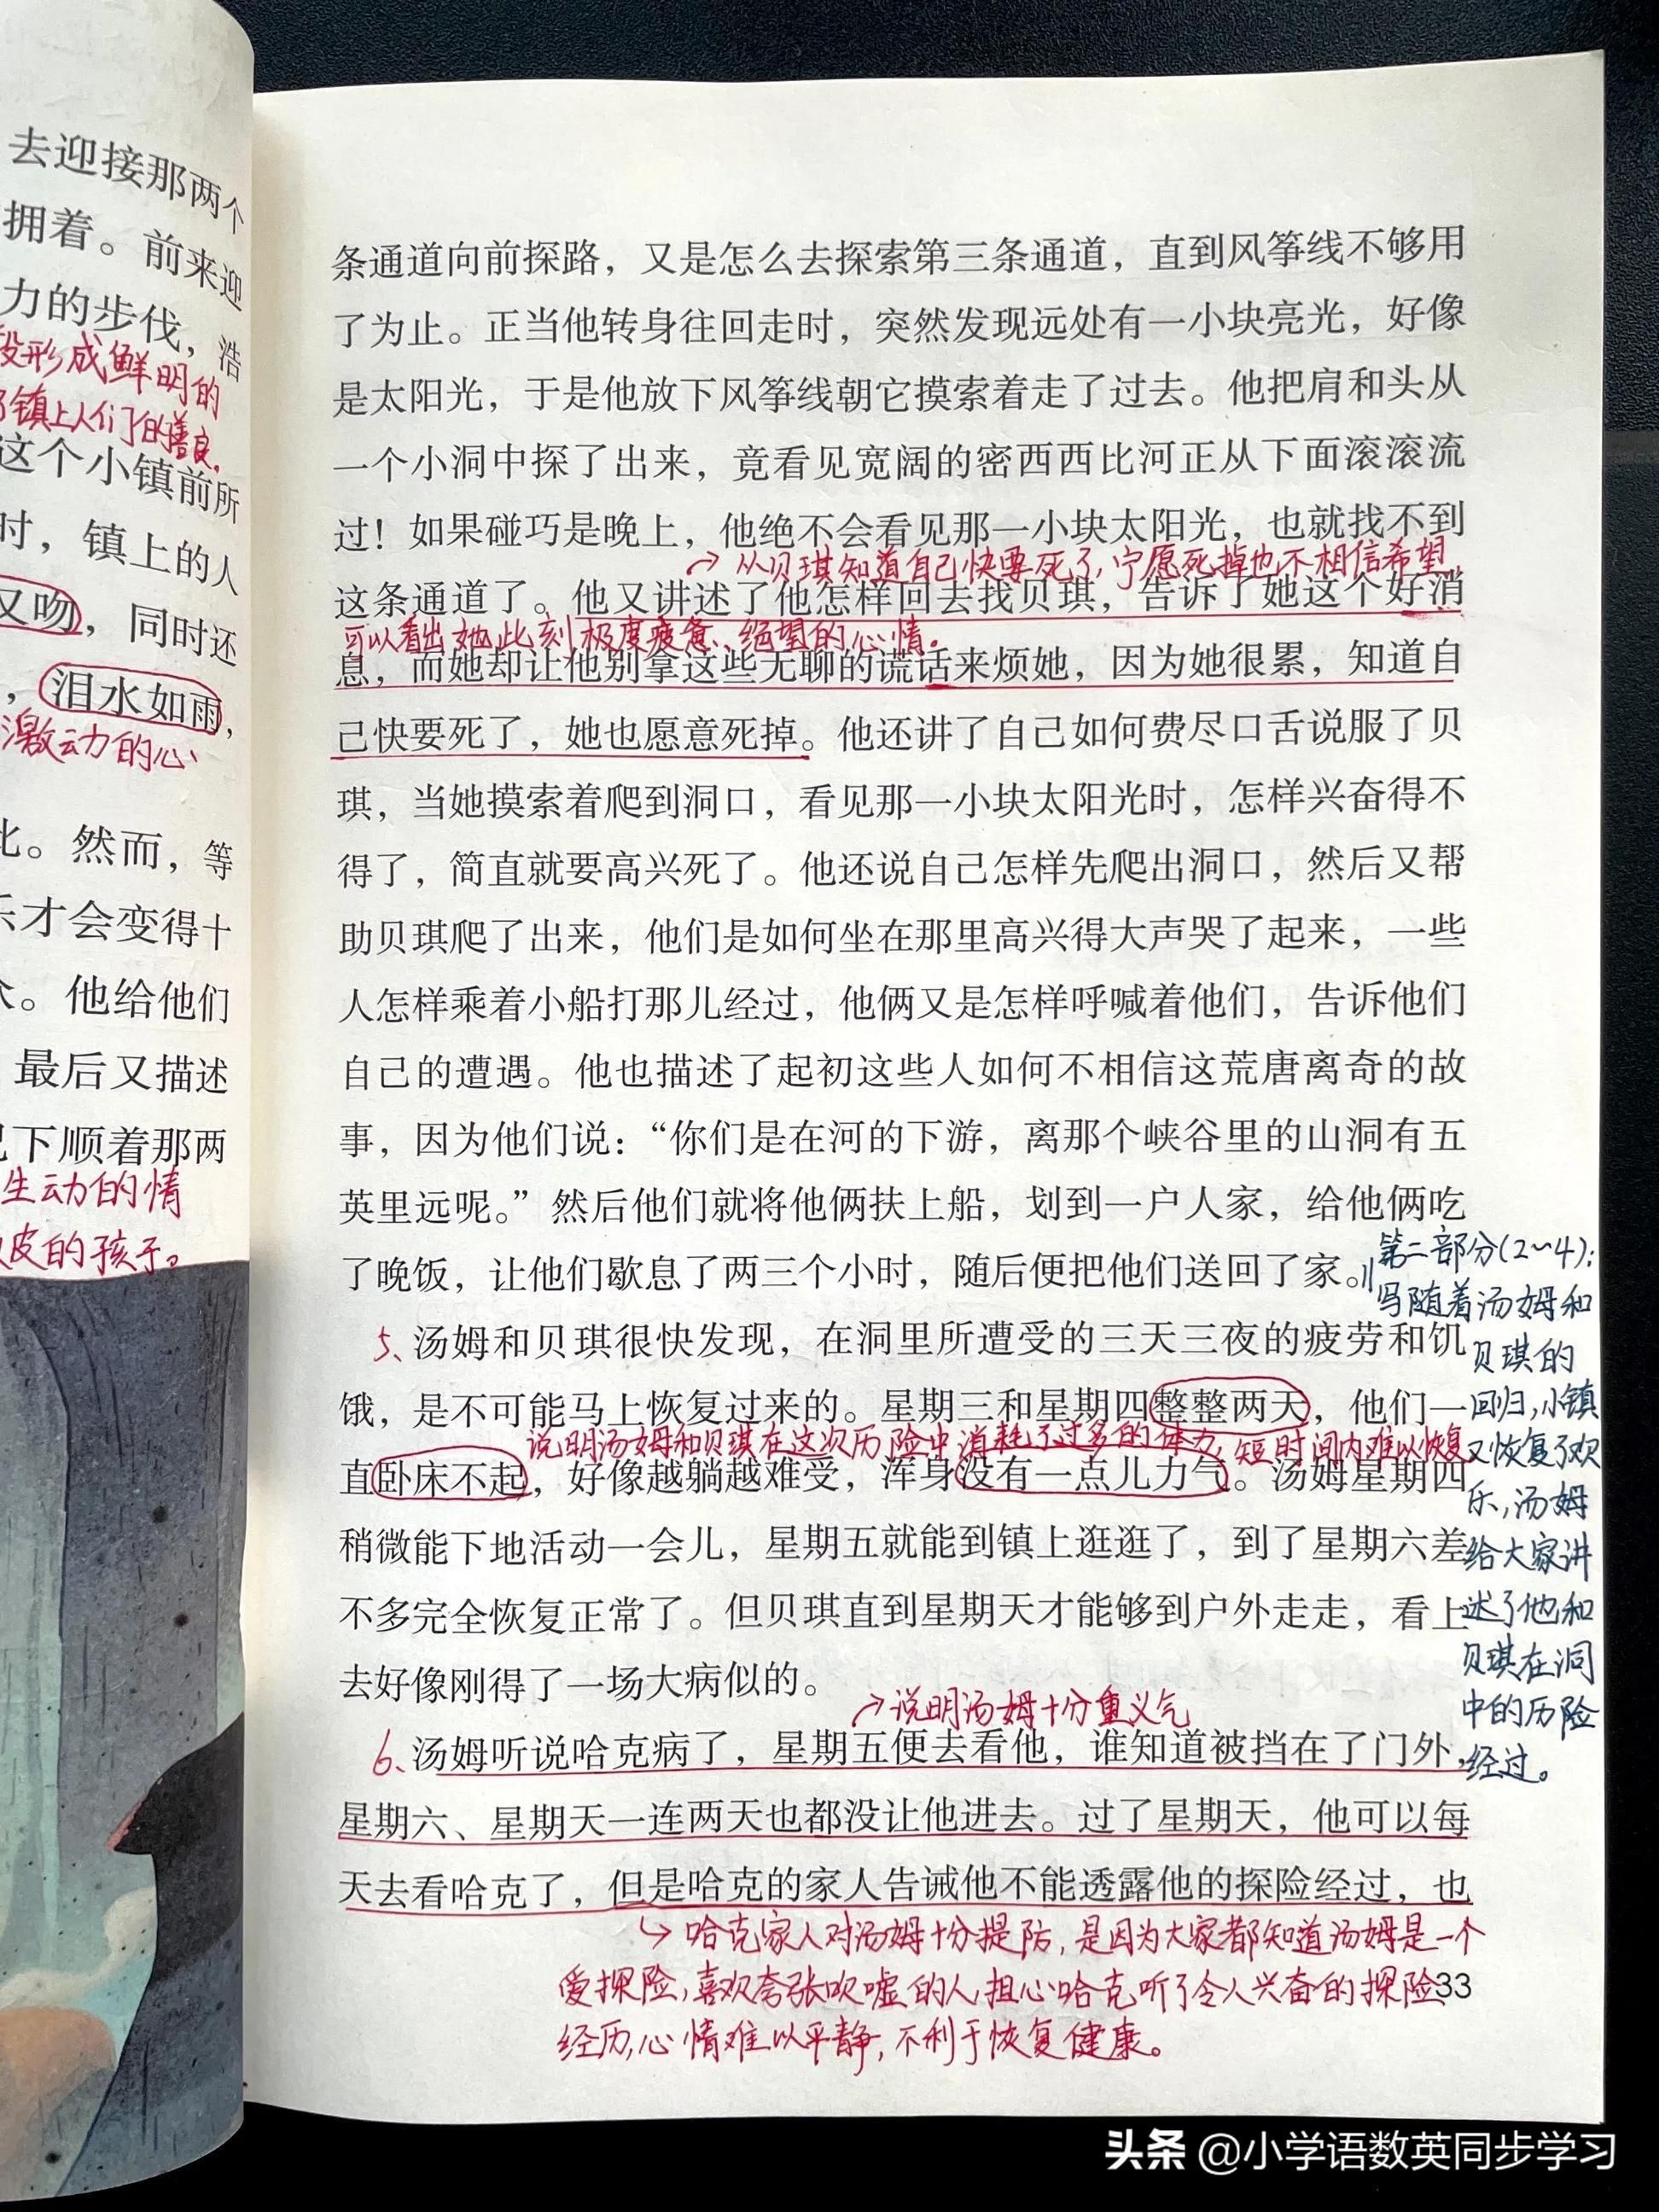 去迎接那两个
拥着。前来迎
力的步伐，浩
段形成鲜明的
镇上人们的善良。
这个小镇前所
时，镇上的人
又吻，同时还
，泪水如雨，
激动的心
此。然而，等
乐才会变得十
众。他给他们
最后又描述
己下顺着那两
生动的情
皮的孩子。
条通道向前探路，又是怎么去探索第三条通道，直到风筝线不够用
了为止。正当他转身往回走时，突然发现远处有一小块亮光，好像
是太阳光，于是他放下风筝线朝它摸索着走了过去。他把肩和头从
一个小洞中探了出来，竟看见宽阔的密西西比河正从下面滚滚流
过！如果碰巧是晚上，他绝不会看见那一小块太阳光，也就找不到
→从贝琪知道自己快要死了，宁愿死掉也不相信希望，
这条通道了。他又讲述了他怎样回去找贝琪，告诉了她这个好消
可以看出她此刻极度疲惫、绝望的心情。
息，而她却让他别拿这些无聊的谎话来烦她，因为她很累，知道自
己快要死了，她也愿意死掉。他还讲了自己如何费尽口舌说服了贝
琪，当她摸索着爬到洞口，看见那一小块太阳光时，怎样兴奋得不
得了，简直就要高兴死了。他还说自己怎样先爬出洞口，然后又帮
助贝琪爬了出来，他们是如何坐在那里高兴得大声哭了起来，一些
人怎样乘着小船打那儿经过，他俩又是怎样呼喊着他们，告诉他们
自己的遭遇。他也描述了起初这些人如何不相信这荒唐离奇的故
事，因为他们说：“你们是在河的下游，离那个峡谷里的山洞有五
英里远呢。”然后他们就将他俩扶上船，划到一户人家，给他俩吃
了晚饭，让他们歇息了两三个小时，随后便把他们送回了家。
5、汤姆和贝琪很快发现，在洞里所遭受的三天三夜的疲劳和饥
饿，是不可能马上恢复过来的。星期三和星期四整整两天，他们一
说明汤姆和贝琪在这次历险中消耗了过多的体力，短时间内难以恢复
直卧床不起，好像越躺越难受，浑身没有一点儿力气。汤姆星期四
稍微能下地活动一会儿，星期五就能到镇上逛逛了，到了星期六差
不多完全恢复正常了。但贝琪直到星期天才能够到户外走走，看上
去好像刚得了一场大病似的。
→说明汤姆十分重义气
6、汤姆听说哈克病了，星期五便去看他，谁知道被挡在了门外，
星期六、星期天一连两天也都没让他进去。过了星期天，他可以每
天去看哈克了，但是哈克的家人告诫他不能透露他的探险经过，也
→哈克家人对汤姆十分提防，是因为大家都知道汤姆是一个
爱探险，喜欢夸张吹嘘的人，担心哈克听了令人兴奋的探险
经历，心情难以平静，不利于恢复健康。
33
第二部分(2~4)：
写随着汤姆和
贝琪的
回归，小镇
又恢复了欢
乐，汤姆
给大家讲
述了他和
贝琪在洞
中的历险
经过。
头条 @小学语数英同步学习